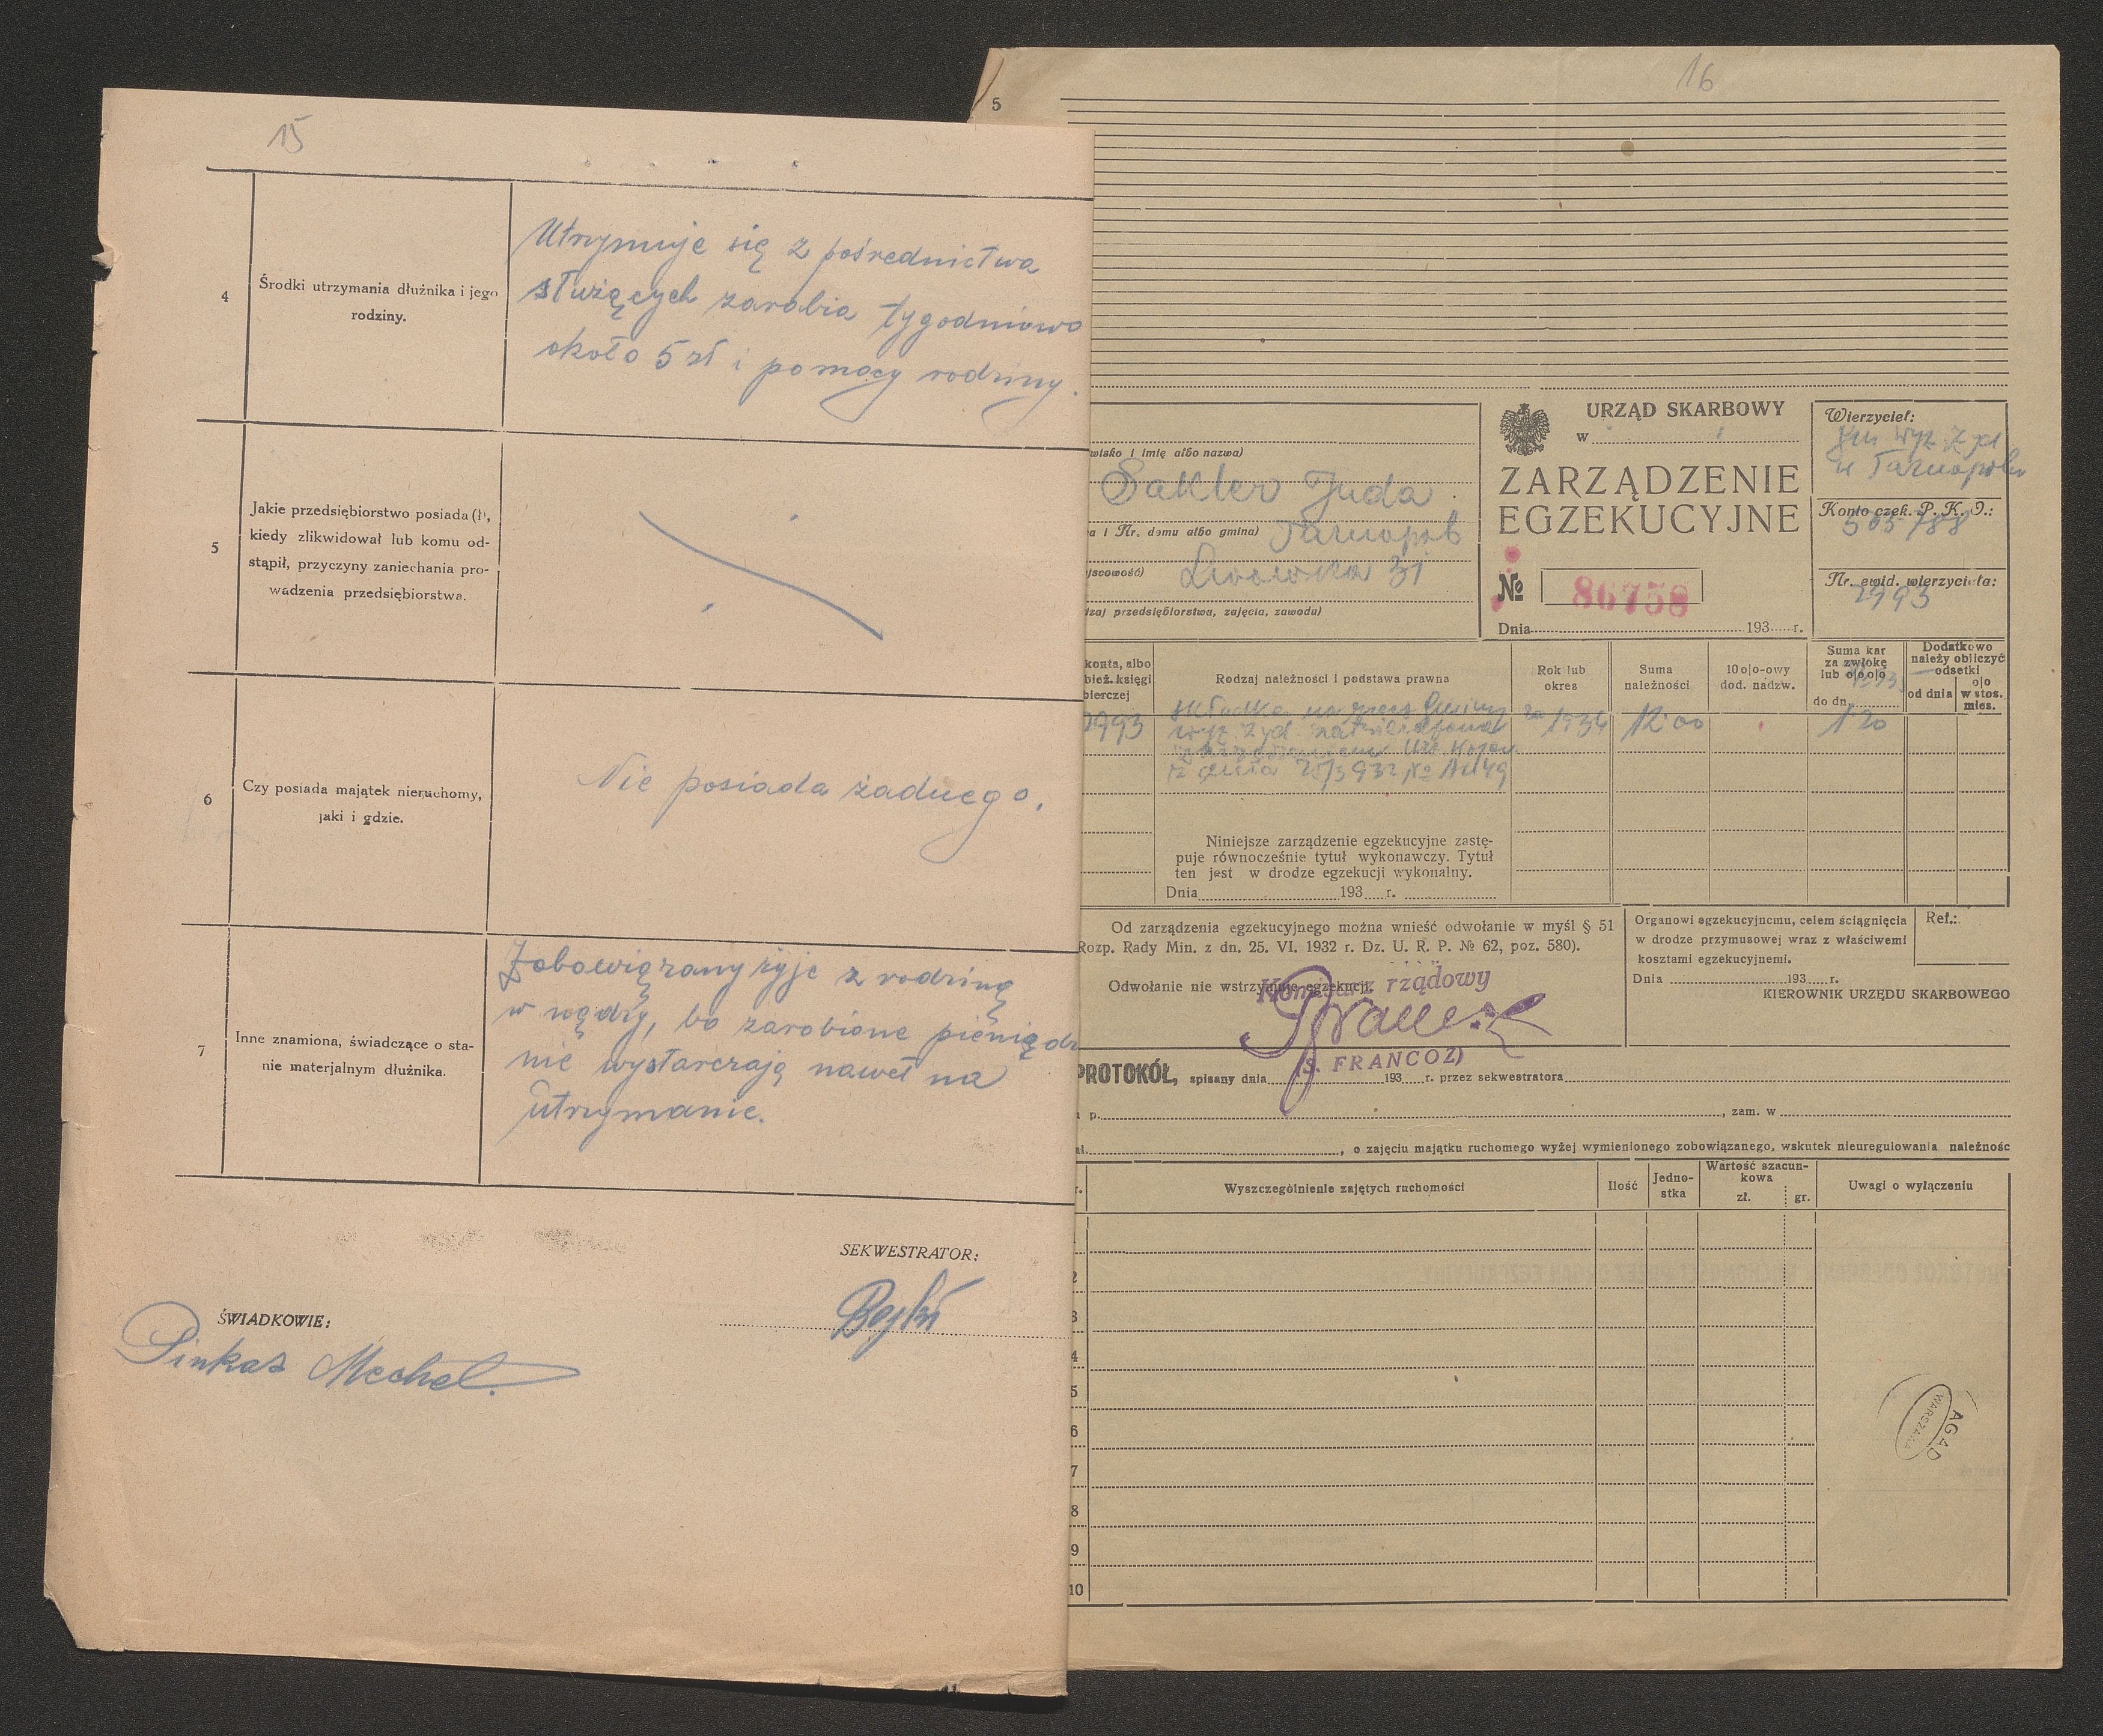 15
4
Środki utrzymania dłużnika i jego
rodziny.
Utrzymuje się z pośrednictwa
służących zarabia tygodniowo
około 5 zł i pomocy rodziny.
5
Jakie przedsiębiorstwo posiada (ł),
kiedy zlikwidował lub komu od-
stąpił, przyczyny zaniechania pro-
wadzenia przedsiębiorstwa.
6
Czy posiada majątek nieruchomy,
jaki i gdzie.
Nie posiada żadnego.
7
Inne znamiona, świadczące o sta-
nie materjalnym dłużnika.
Zobowiązany żyje z rodziną
w nędzy, bo zarobione pieniądz
nie wystarczają nawet na
utrzymanie.
SEKWESTRATOR:
ŚWIADKOWIE:
Pinkas Mechel
16
5
wisko i imię albo nazwa)
Sakler Juda
a i Nr. domu albo gmina) Tarnopol
jscowość) Lwowska 31
dzaj przedsiębiorstwa, zajęcia, zawodu)
URZĄD SKARBOWY
w
ZARZĄDZENIE
EGZEKUCYJNE
№ 86758
Dnia 193 r.
Wierzyciel:
Gm wyz żyd
w Tarnopolu
Konto czek. P. K. O.:
505788
Nr. ewid. wierzyciela:
2993
konta, albo
bież. księgi
bierczej
Rodzaj należności i podstawa prawna
Rok lub
okres
Suma
należności
10 o/o-owy
dod. nadzw.
Suma kar
za zwłokę
lub o/o o/o
do dn.
Dodatkowo
należy obliczyć
odsetki
od dnia
o/o
w stos.
mies.
2993
składka na rzecz Gminy
wyz żyd zatwierdzona
Urz. Wojew.
z dnia 25/3 932 №
za 1934
12.00
1.20
Niniejsze zarządzenie egzekucyjne zastę-
puje równocześnie tytuł wykonawczy. Tytuł
ten jest w drodze egzekucji wykonalny.
Dnia 193 r.
Od zarządzenia egzekucyjnego można wnieść odwołanie w myśl § 51
Rozp. Rady Min. z dn. 25. VI. 1932 r. Dz. U. R. P. № 62, poz. 580).
Odwołanie nie wstrzymuje egzekucji.
Komisarz rządowy
(S. FRANCOZ)
Organowi egzekucyjnemu, celem ściągnięcia
w drodze przymusowej wraz z właściwemi
kosztami egzekucyjnemi.
Dnia 193 r.
Ref.:
KIEROWNIK URZĘDU SKARBOWEGO
PROTOKÓŁ, spisany dnia 193 r. przez sekwestratora
p. , zam. w
, o zajęciu majątku ruchomego wyżej wymienionego zobowiązanego, wskutek nieuregulowania należnośc
r.
Wyszczególnienie zajętych ruchomości
Ilość
Jedno-
stka
Wartość szacun-
kowa
zł.
gr.
Uwagi o wyłączeniu
1
2
3
4
5
6
7
8
9
10
AGAD
WARSZAWA